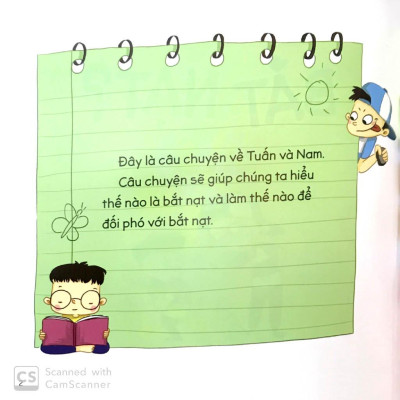 Đây là câu chuyện về Tuấn và Nam.
Câu chuyện sẽ giúp chúng ta hiểu
thế nào là bắt nạt và làm thế nào để
đối phó với bắt nạt.
CS
Scanned with
CamScanner